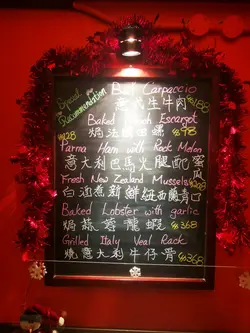 Special Recommendation
Beef Carpaccio
意式生牛肉 $168
Baked French Escargot
焗法國田螺 $98
$128
Parma Ham with Rock Melon
意大利巴馬火腿配蜜瓜
Fresh New Zealand Mussels
白酒煮新鮮紐西蘭青口 $198
Baked Lobster with garlic
焗蒜蓉龍蝦 $368
Grilled Italy Veal Rack
燒意大利牛仔骨 $368